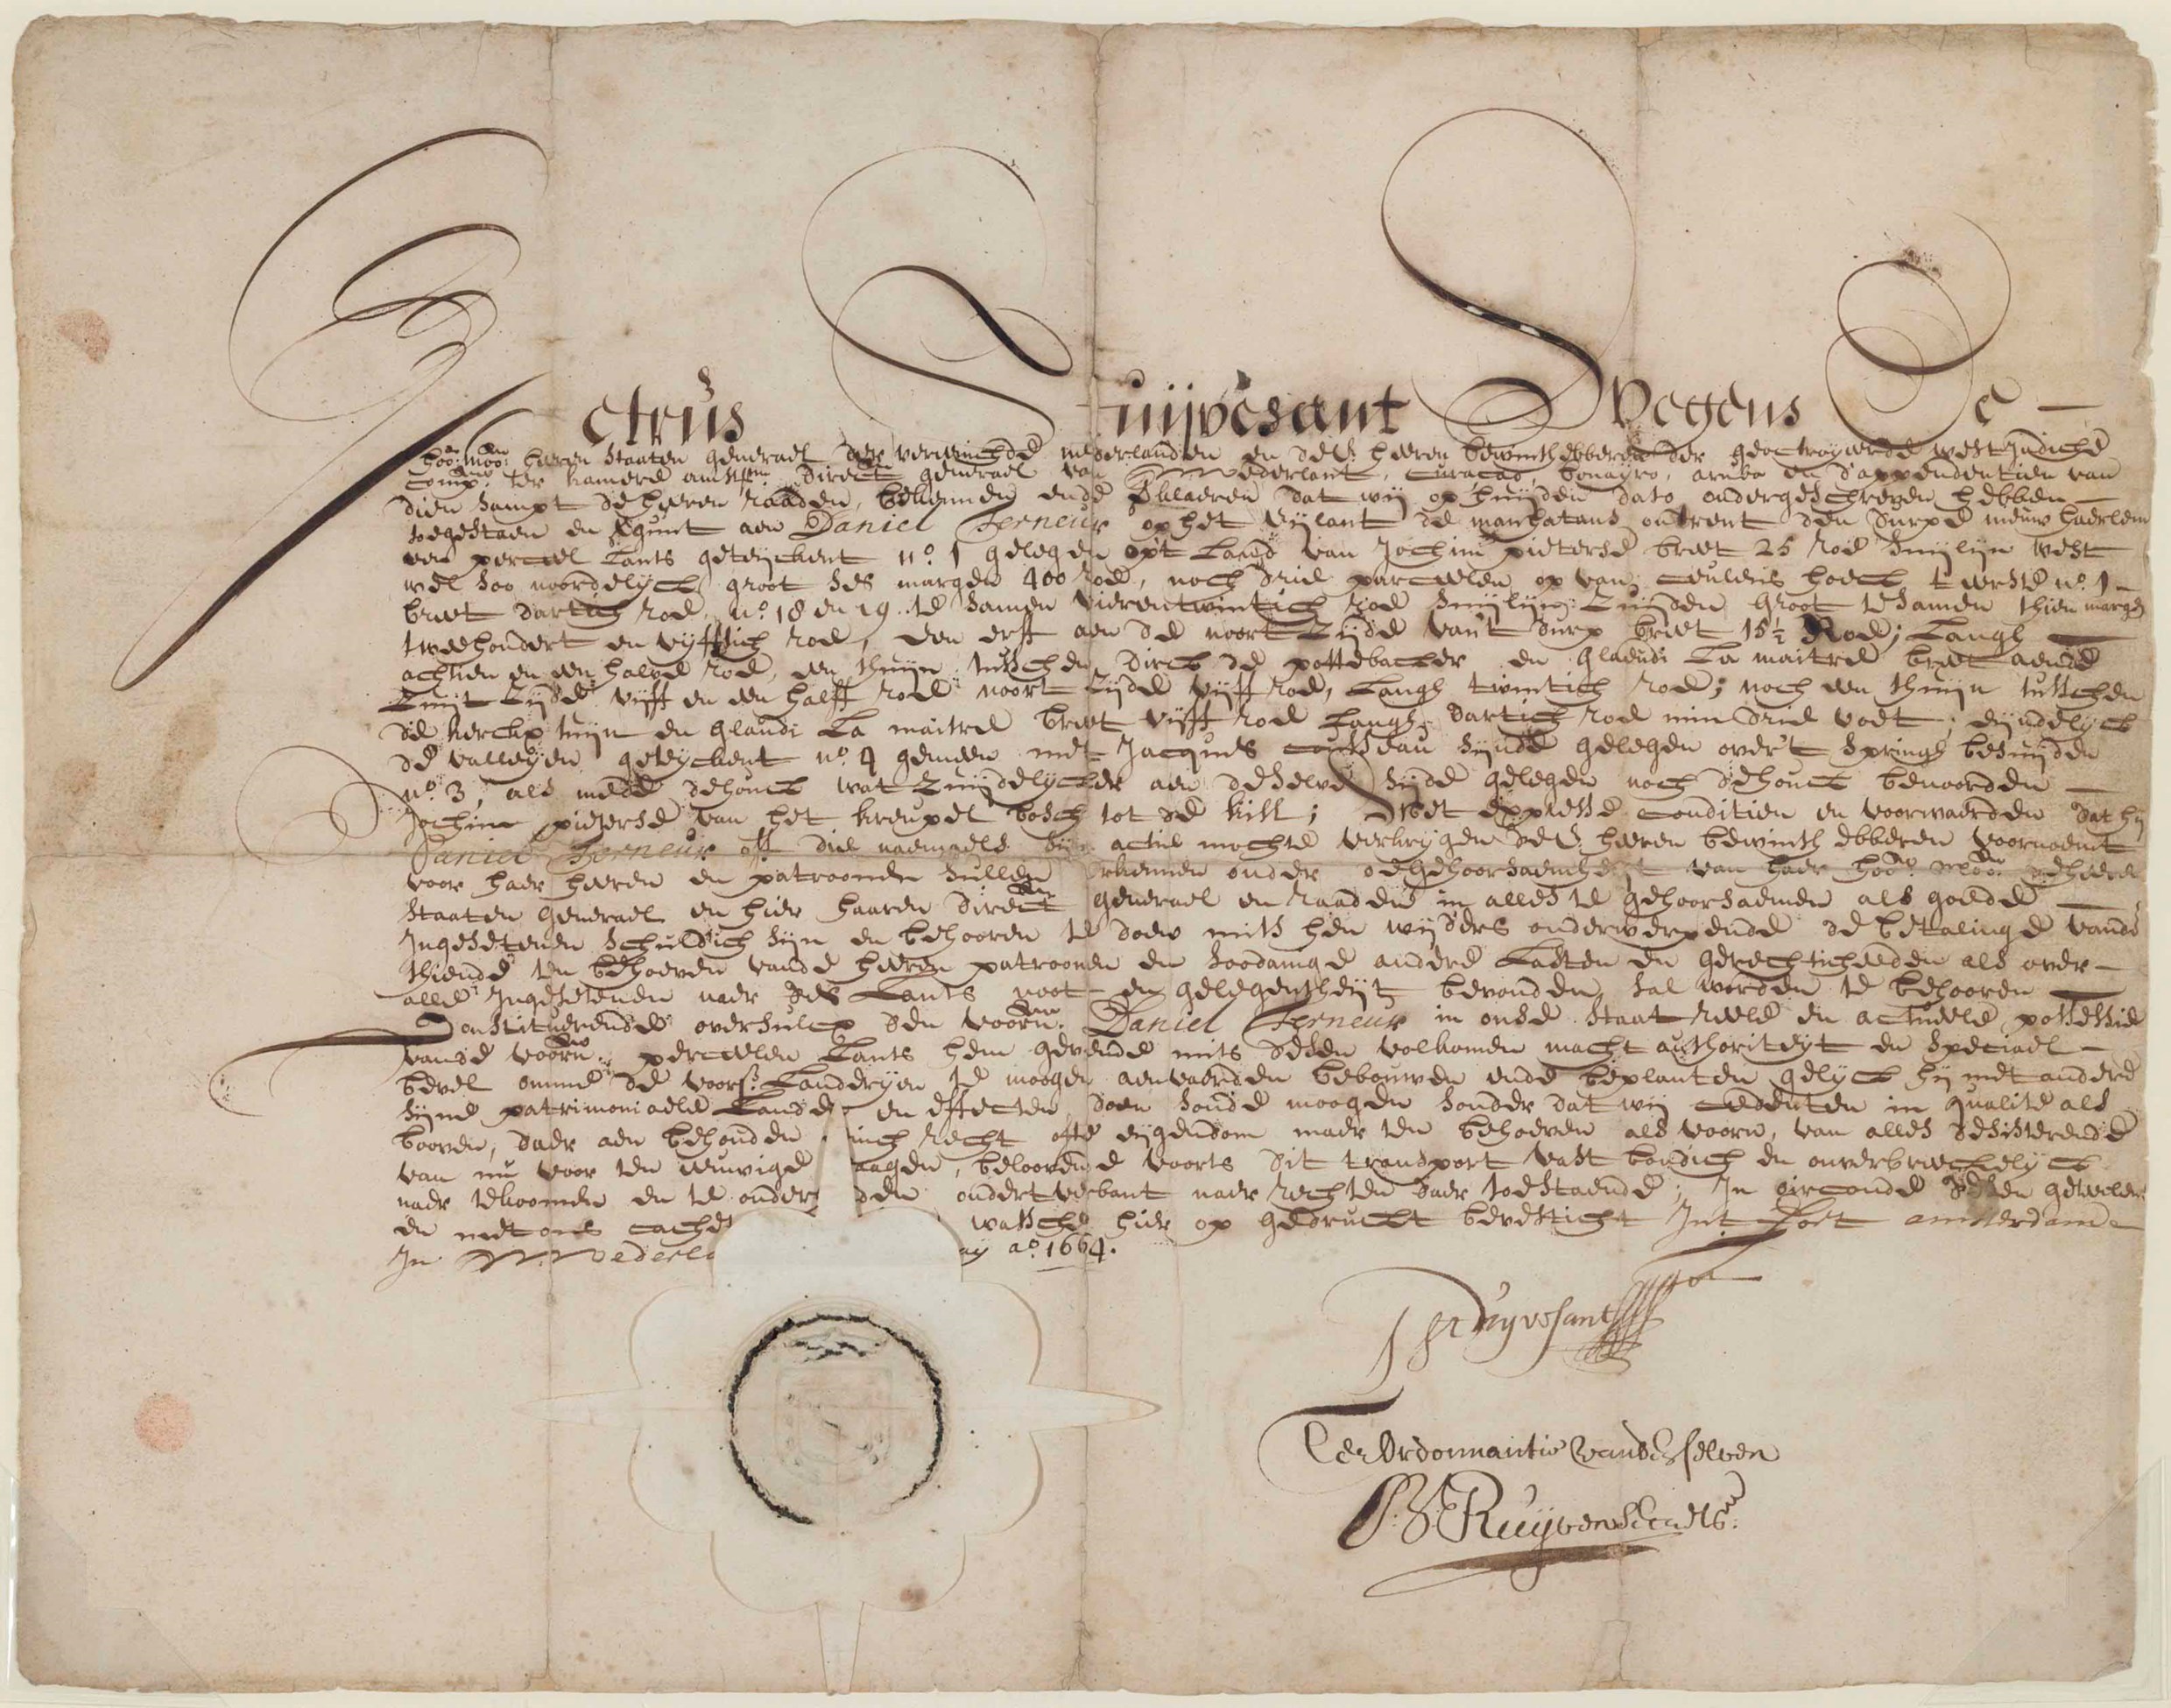 Petrus Stuijvesant Wegens De
hoo: moo: heeren Staaten generael der vereenichde nederlanden en de E: heeren bewinthebberen der geoctroyeerde west Indiche
comp: ter kamere amst: Direct: generael van N: Nederlant, Curacao, bonayro, aruba en d'appendentien van
dien sampt de heeren raaden, bekennen ende verklaeren dat wij op huijden dato ondergeschreven hebben
toegestaen en gegunt aen Daniel Terneur op het Eylant de manhatans ontrent den durpe nieuw haerlem
een perceel Lants geteijckent no. 1 gelegen op't Land van Jochim pieterse breet 25 roe suijlijn west
wel soo noordelyck groot ses margen 400 roe, noch drie parceelen op van ceulens hoeck t eerste no. 1
breet dartich roe, no. 18 en 19 te samen vierentwintich roe suijlijn Zuijden groot te samen thien margen
tweehondert en vijfftich roe, een erff aen de noort Zijde van't durp breet 15½ Roe; Langh
achtien en een halve roe, een thuijn tusschen dirck de pottebacker en Glaudi La maitre breet aende
Zuit Zijde vijff en een halff roe noort Zijde vijff roe, Langh twintich roe; noch een thuijn tusschen
de kerckx tuijn en Glaudi La maitre breet vijff roe Langh dartich roe min drie voet; eijndelyck
de valleyen geteyckent no. 4 gemeen met Jacques cousseau sijnde gelegen over't springh besuijden
no. 3, als mede de houck wat Zuijdelycker aen deselve sijde gelegen noch de houck benoorden
Jochim pieterse van het kreupel bosch tot de kill; Met expresse conditien en voorwaerden dat hij
Daniel Terneur off die naemaels sijn actie mochte verkrijgen de E: heeren bewinthebberen voornoemt
voor haer heeren en patroonen sullen erkennen onder de gehoorsaemheijt van haer hoo: moo: de heeren
Staaten generael en hier haaren direct: generael en raaden in alles te gehoorsaemen als goede
Ingesetenen schuldich sijn en behooren te doen mits hen wijders onderwerpende de betalinge vande
thiende ten behoeven vande heeren patroonen en soodanige andere Lasten en gerechticheeden als over
alle Ingesetenen naer des Lants noot en gelegentheijt bevonden sal werden te behooren
Constituerende oversulcx den voorn: Daniel Terneur in onse staat reele en actueele possessie
vande voorn: perceelen Lants hem gevende mits desen volkomen macht authoriteyt en speciael
bevel omme de voors: Landeryen te moogen aenvaerden bebouwen ende beplanten gelyck hij met andere
sijne patrimoniaele Landen en effecten doen soude moogen sonder dat wij cedenten in qualite als
booven, daer aen behouden eenich recht ofte eijgendom maer ten behoeven als voorn, van alles desisterende
van nu voor ten eeuwige daagen, beloovende voorts dit transport vast bondich en onverbreeckelyck
naer tekoomen en te onderhouden ondert verbant naer rechten daer toe staende; In oirconde desen geteekent
en met ons cachet wassche hier op gedruckt bevesticht Int Fort amsterdam
In N: Nederla ay ao. 1664.
P Stuyvesant
Ter Ordonnantie vande selven
C. V. Ruijven Secrets: